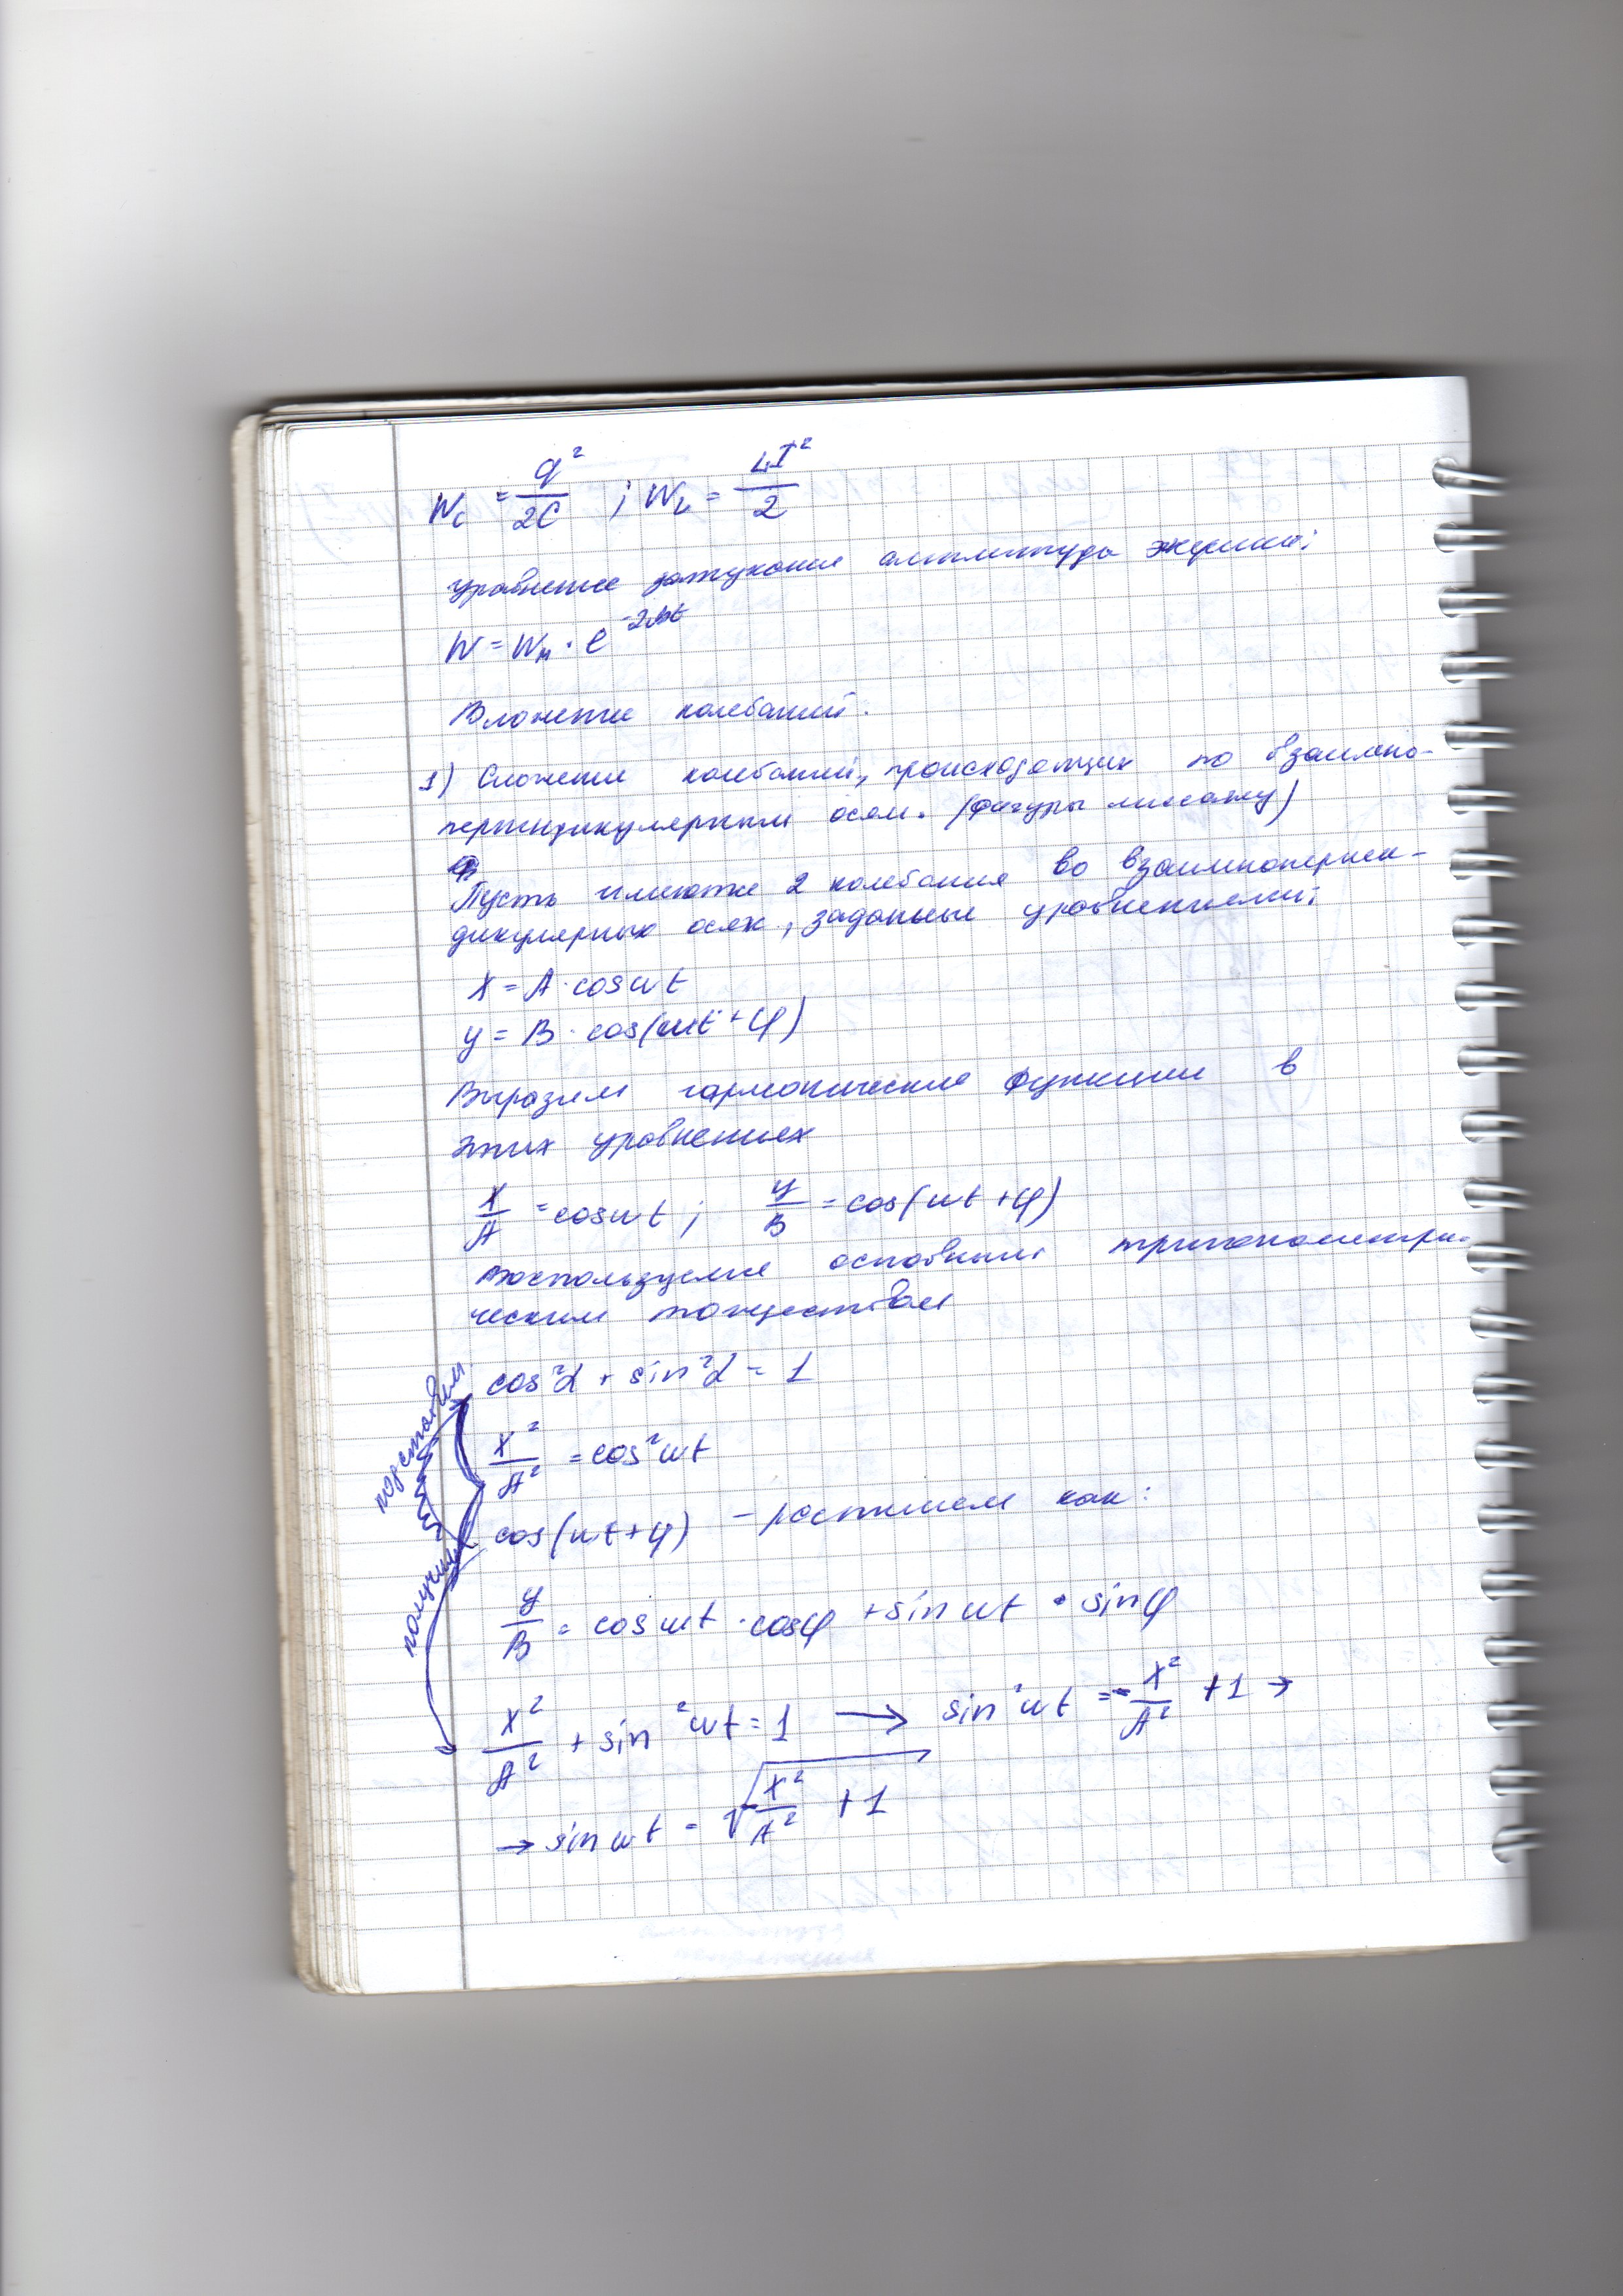 W_c = q²/2C ; W_L = LI²/2
уравнение затухания амплитуды энергии:
W = W_м · e^(-2βt)
Вложение колебаний.
1) Сложение колебаний, происходящих по взаимно-
перпендикулярным осям. (фигуры лиссажу)
Пусть имеются 2 колебания во взаимноперпен-
дикулярных осях, заданные уравнениями:
x = A · cos ωt
y = B · cos(ωt + φ)
Выразим гармонические функции в
этих уравнениях
x/A = cos ωt ; y/B = cos(ωt + φ)
воспользуемся основным тригонометри-
ческим тождеством
cos²α + sin²α = 1
подставим
x²/A² = cos²ωt
cos(ωt + φ) – распишем как:
получим
y/B = cos ωt · cosφ + sin ωt · sinφ
x²/A² + sin²ωt = 1 → sin²ωt = -x²/A² + 1 →
→ sin ωt = √(-x²/A² + 1)